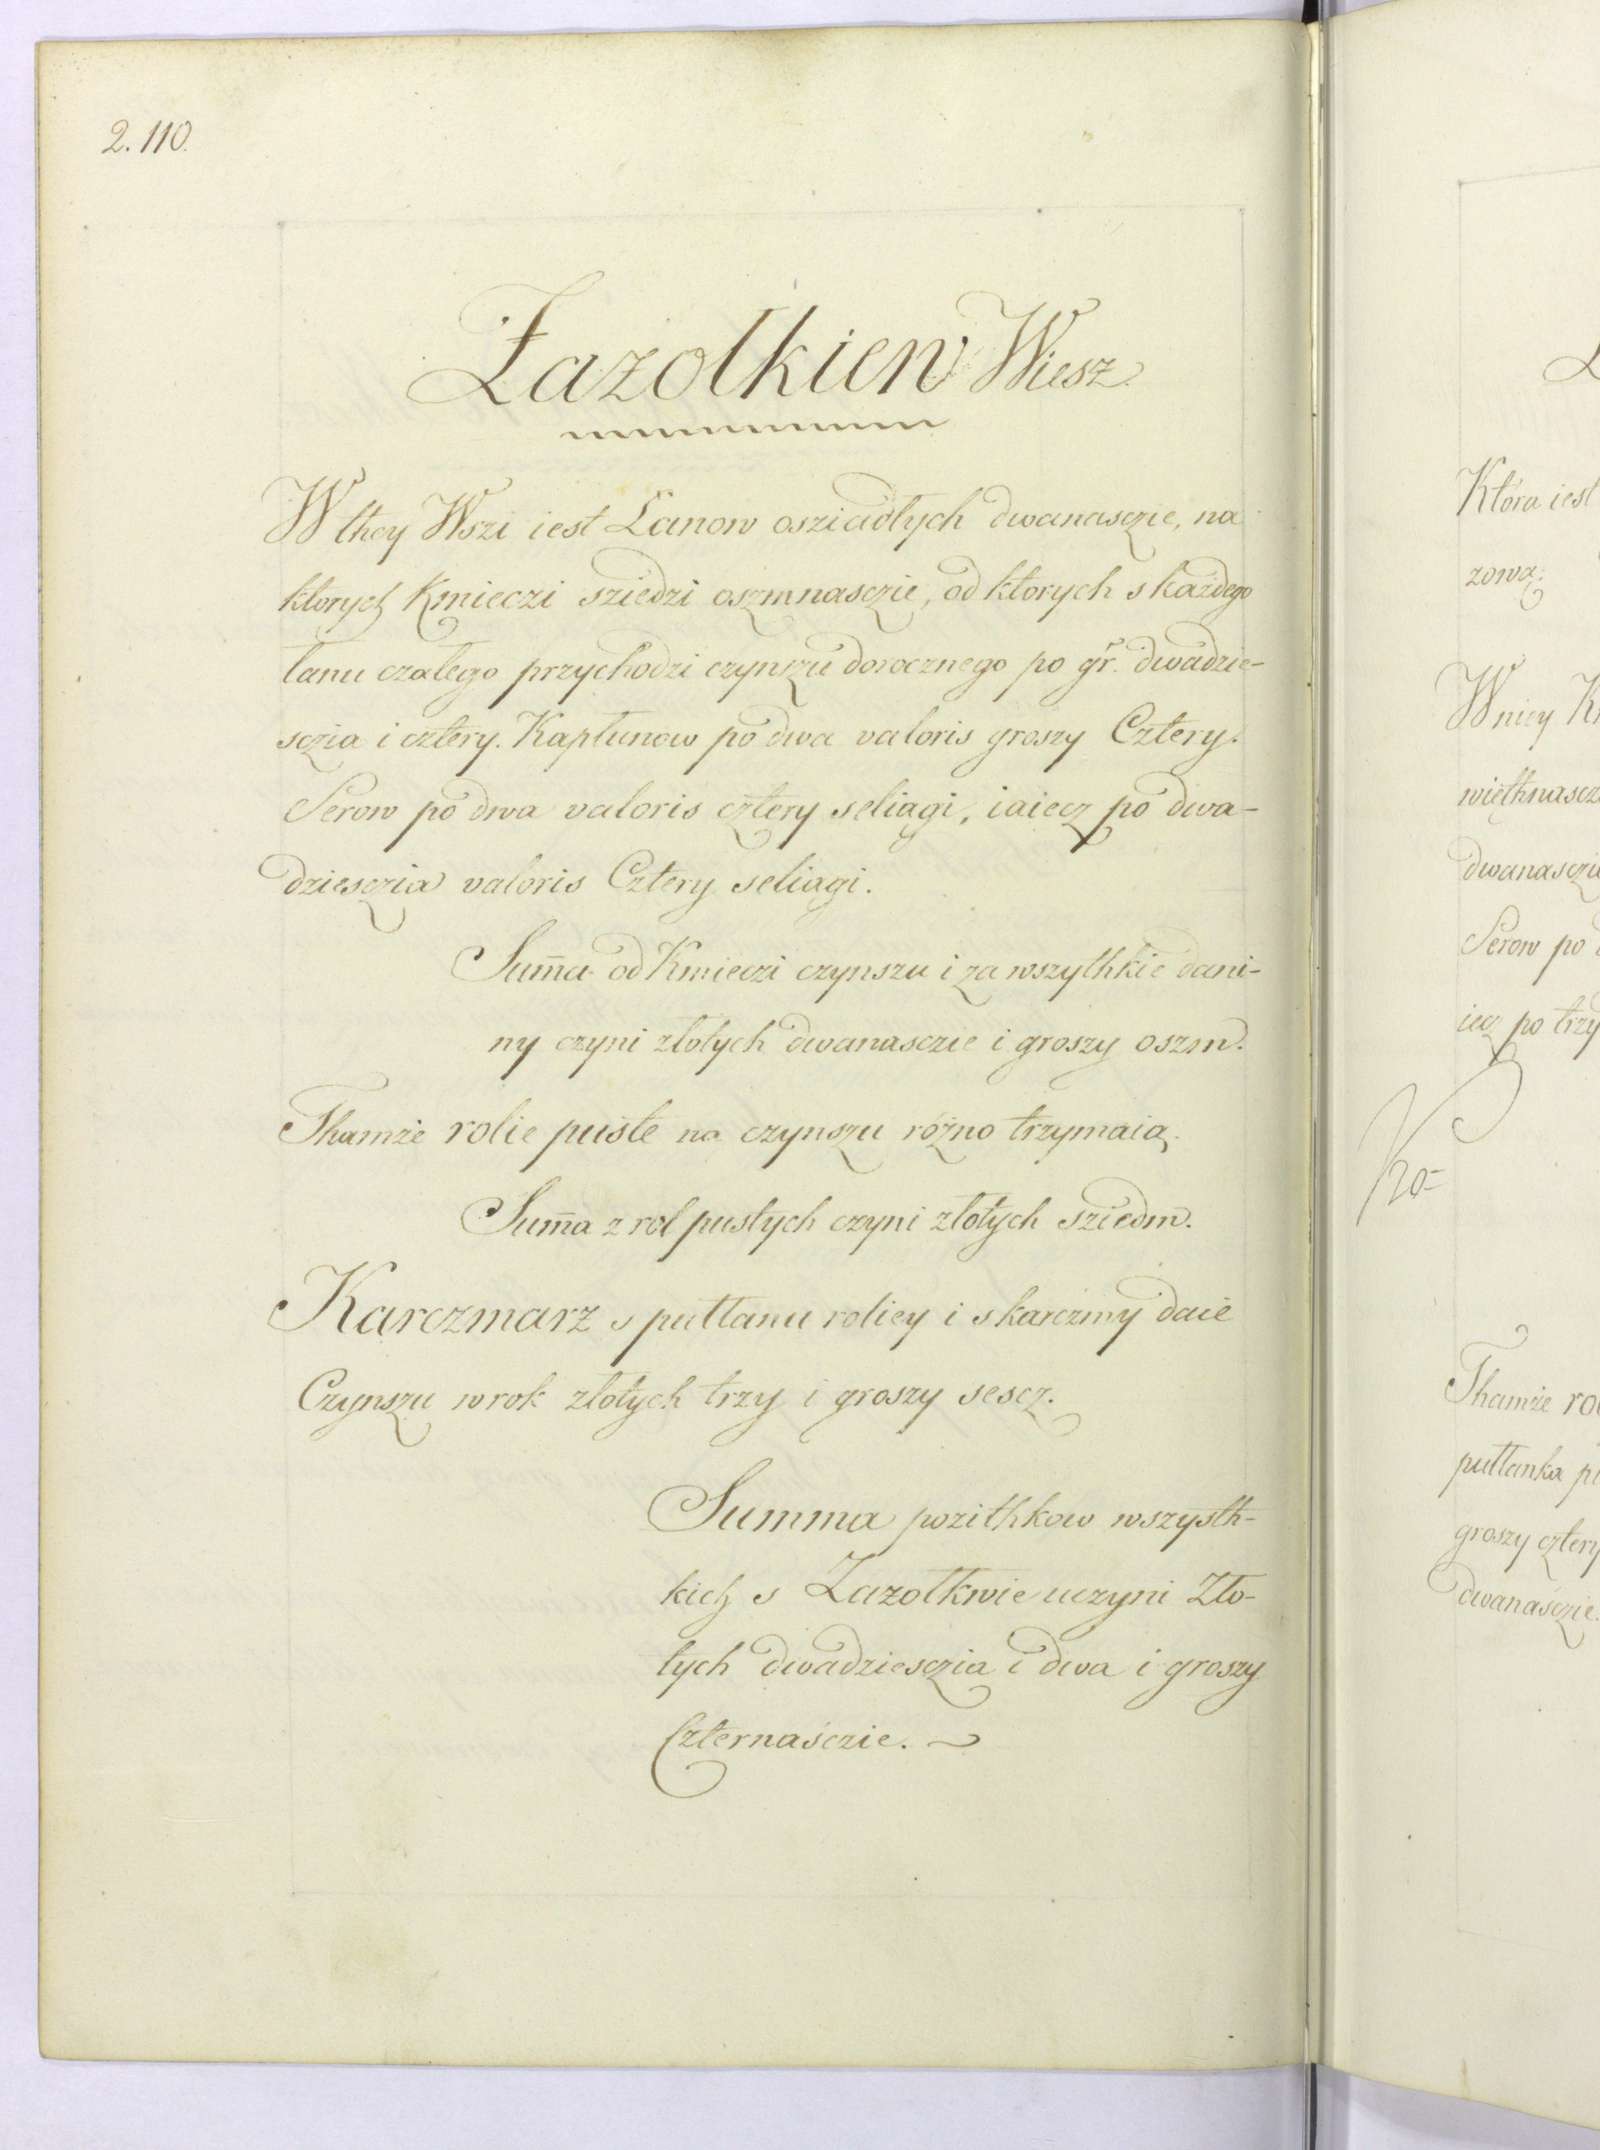 2.110.
Zazolkiew Wiesz.
W they Wszi iest Łanow osziadłych dwanasczie, na
ktorych Kmieczi sziedzi oszmnasczie, od ktorych s każdego
łanu czałego przychodzi czynszu dorocznego po gr. dwadzie-
sczia i cztery. Kapłunow po dwa valoris groszy Cztery.
Serow po dwa valoris cztery seliagi, iaiecz po dwa-
dziesczia valoris Cztery seliagi.
Sum̄a od Kmieczi czynszu i za wszythkie dani-
ny czyni złotych dwanasczie i groszy oszm.
Thamże rolie puste na czynszu różno trzymaią.
Sum̄a z rol pustych czyni złotych sziedm.
Karczmarz s pułłanu roliey i s karczmy daie
Czynszu w rok złotych trzy i groszy sescz.
Summa pozithkow wszysth-
kich s Zazołkwie uczyni Zło-
tych dwadziesczia i dwa i groszy
Czternaśczie.
Która iest
zową:
W niey
więthnascz
dwanasczie
Serow po
iecz po trzy
Tham̄że
pułłanka
groszy cztery
dwanasczie.